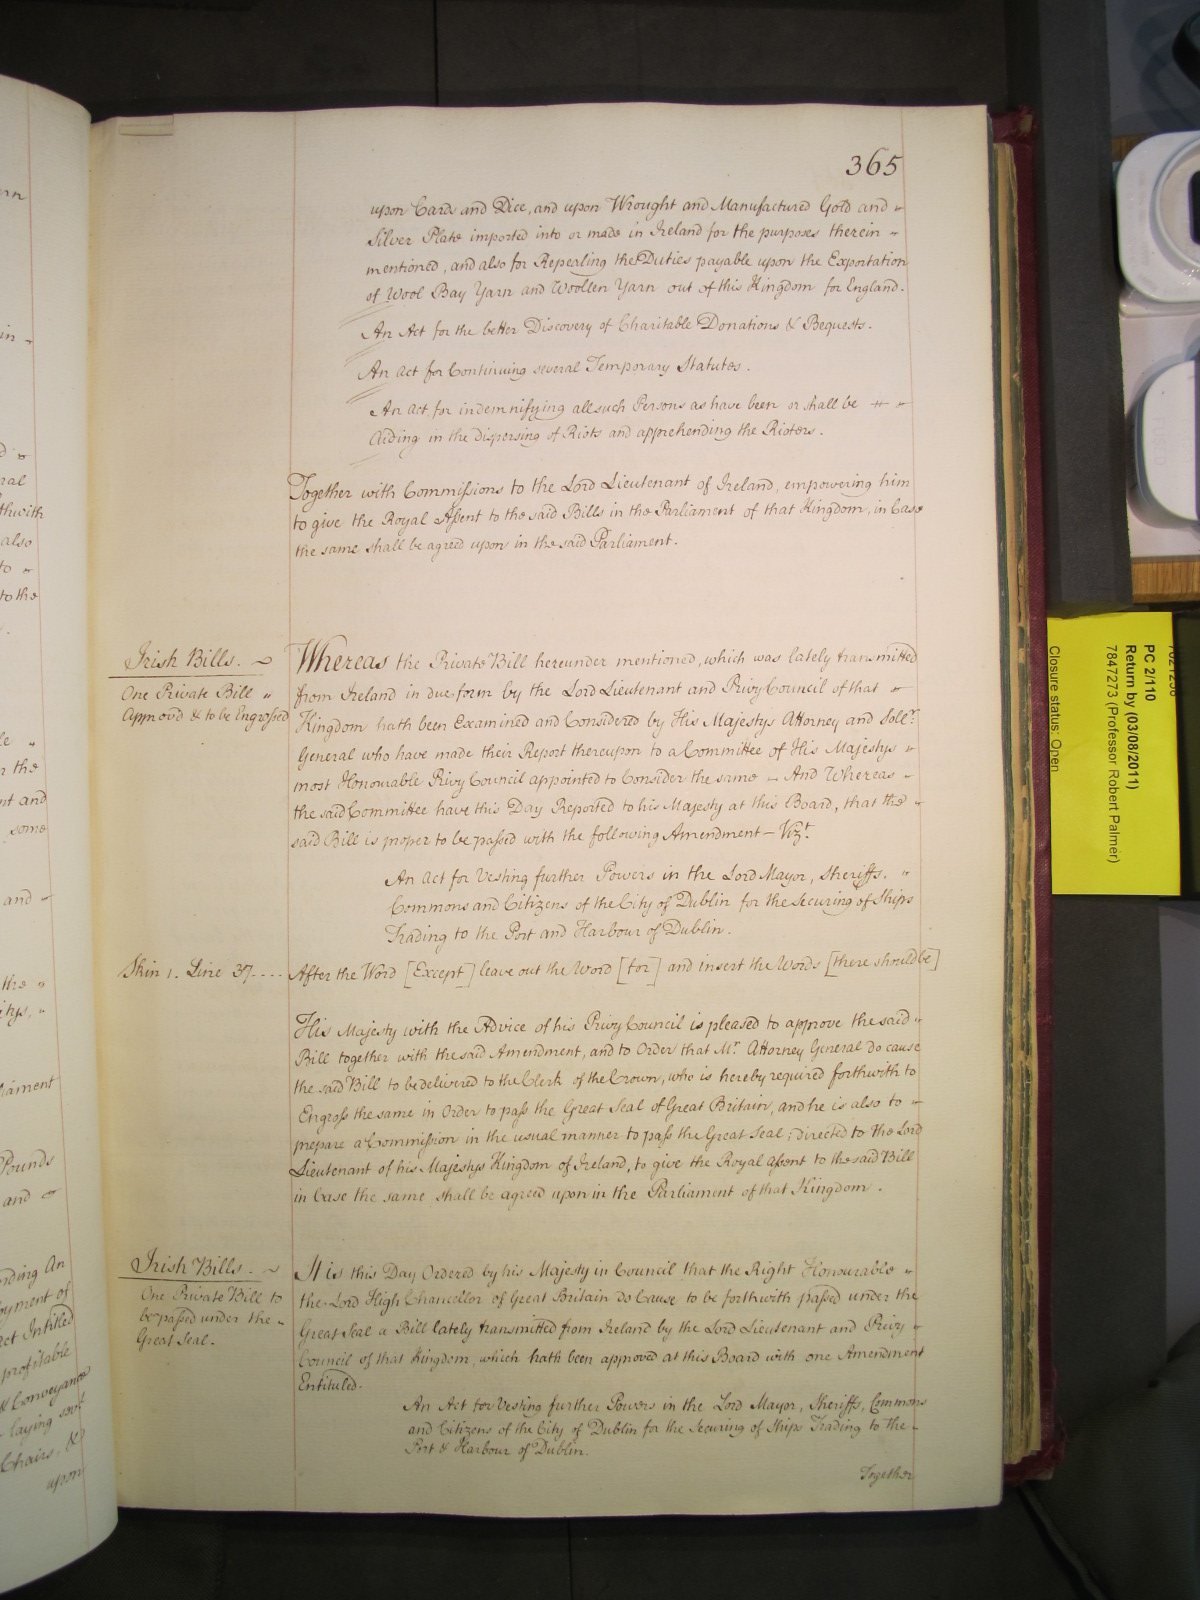 365
upon Cards and Dice, and upon Wrought and Manufactured Gold and
Silver Plate imported into or made in Ireland for the purposes therein
mentioned, and also for Repealing the Duties payable upon the Exportation
of Wool Bay Yarn and Woollen Yarn out of this Kingdom for England.
An Act for the better Discovery of Charitable Donations & Bequests.
An Act for Continuing several Temporary Statutes.
An Act for indemnifying all such Persons as have been or shall be
Aiding in the dispersing of Riots and apprehending the Rioters.
Together with Commissions to the Lord Lieutenant of Ireland, empowering him
to give the Royal Assent to the said Bills in the Parliament of that Kingdom, in Case
the same shall be agreed upon in the said Parliament.
Irish Bills.
One Private Bill
Approv'd & to be Engrossed
Whereas the Private Bill hereunder mentioned, which was lately transmitted
from Ireland in due form by the Lord Lieutenant and Privy Council of that
Kingdom hath been Examined and Considered by His Majestys Attorney and Sollr.
General who have made their Report thereupon to a Committee of His Majestys
most Honourable Privy Council appointed to Consider the same - And Whereas
the said Committee have this Day Reported to his Majesty at this Board, that the
said Bill is proper to be passed with the following Amendment - Vizt.
An Act for Vesting further Powers in the Lord Mayor, Sheriffs,
Commons and Citizens of the City of Dublin for the Securing of Ships
Trading to the Port and Harbour of Dublin.
Skin 1. Line 37.... After the Word [Except] leave out the Word [for] and insert the Words [there should be]
His Majesty with the Advice of his Privy Council is pleased to approve the said
Bill together with the said Amendment, and to Order that Mr. Attorney General do cause
the said Bill to be delivered to the Clerk of the Crown, who is hereby required forthwith to
Engross the same in Order to pass the Great Seal of Great Britain, and he is also to
prepare a Commission in the usual manner to pass the Great Seal; directed to the Lord
Lieutenant of his Majestys Kingdom of Ireland, to give the Royal Assent to the said Bill
in Case the same shall be agreed upon in the Parliament of that Kingdom.
Irish Bills.
One Private Bill to
be passed under the
Great Seal.
It is this Day Ordered by his Majesty in Council that the Right Honourable
the Lord High Chancellor of Great Britain do Cause to be forthwith passed under the
Great Seal a Bill lately transmitted from Ireland by the Lord Lieutenant and Privy
Council of that Kingdom, which hath been approved at this Board with one Amendment
Entituled.
An Act for Vesting further Powers in the Lord Mayor, Sheriffs, Commons
and Citizens of the City of Dublin for the Securing of Ships Trading to the
Port & Harbour of Dublin.
Together
PC 2/110
Return by (03/08/2011)
7847273 (Professor Robert Palmer)
Closure status: Open
also
to the
and
the
Pounds
and
upon